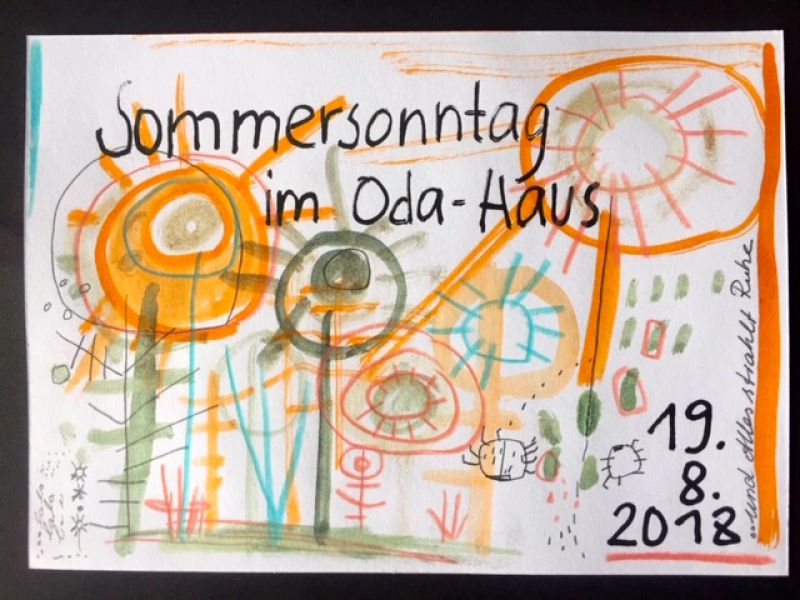 Sommersonntag
im Oda-Haus
19.
8.
2018
"und Alles strahlt Ruhe